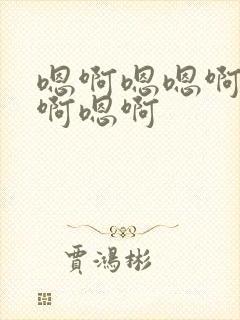 嗯啊嗯嗯啊
啊嗯啊
賈鴻彬